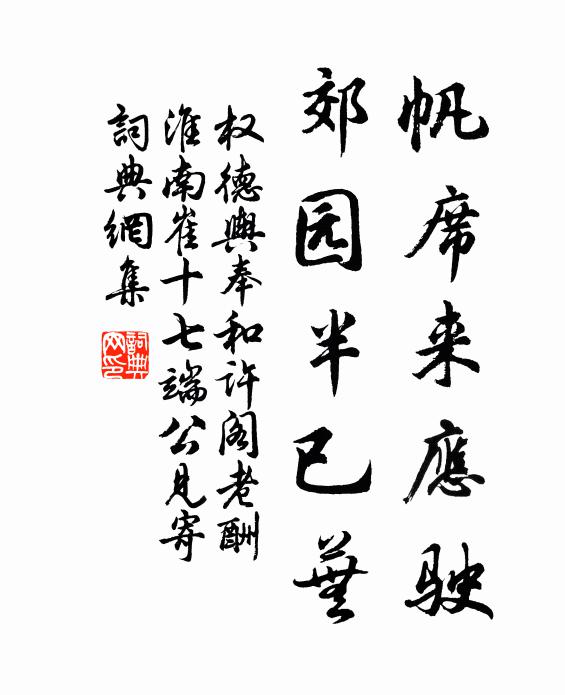 帆席来應駛
郊园半已蕪
权德輿奉和许阁老酬
淮南崔十七端公見寄
詞典網集
詞典网印